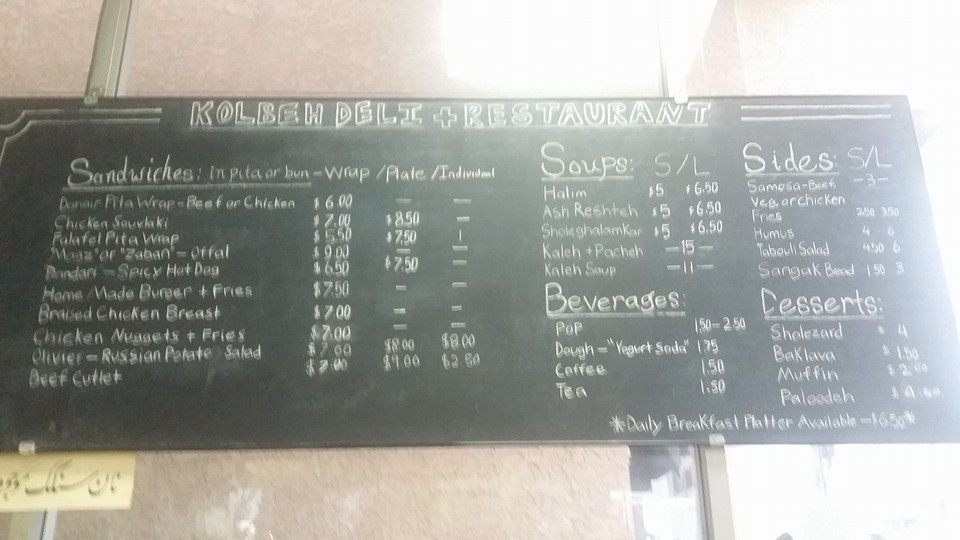 KOLBEH DELI + RESTAURANT
Sandwiches: in pita or bun - Wrap / Plate / Individual
Donair Pita Wrap - Beef or Chicken $6.00 — —
Chicken Souvlaki $7.00 $8.50 —
Falafel Pita Wrap $5.50 $7.50
"Magz" or "Zaban" = Offal $9.00 — —
Bandari = Spicy Hot Dog $6.50 $7.50 —
Home Made Burger + Fries $7.50 — —
Braised Chicken Breast $7.00 — —
Chicken Nuggets + Fries $7.00 — —
Olivier = Russian Potato Salad $7.00 $8.00 $8.00
Beef Cutlet $7.00 $9.00 $2.50
Soups: S/L
Halim $5 $6.50
Ash Reshteh $5 $6.50
Sholeghalamkar $5 $6.50
Kaleh + Pacheh —15—
Kaleh Soup —11—
Beverages:
Pop 1.50-2.50
Dough = "Yogurt Soda" 1.75
Coffee 1.50
Tea 1.50
Sides: S/L
Samosa-Beef, —3—
Veg, or chicken
Fries 2.50 3.50
Humus 4 6
Tabouli Salad 4.50 6
Sangak Bread 1.50 3
Desserts:
Sholezard $ 4
Baklava $ 1.50
Muffin
Paloodeh
*Daily Breakfast Platter Available - $6.50*
نان سنگک موجود